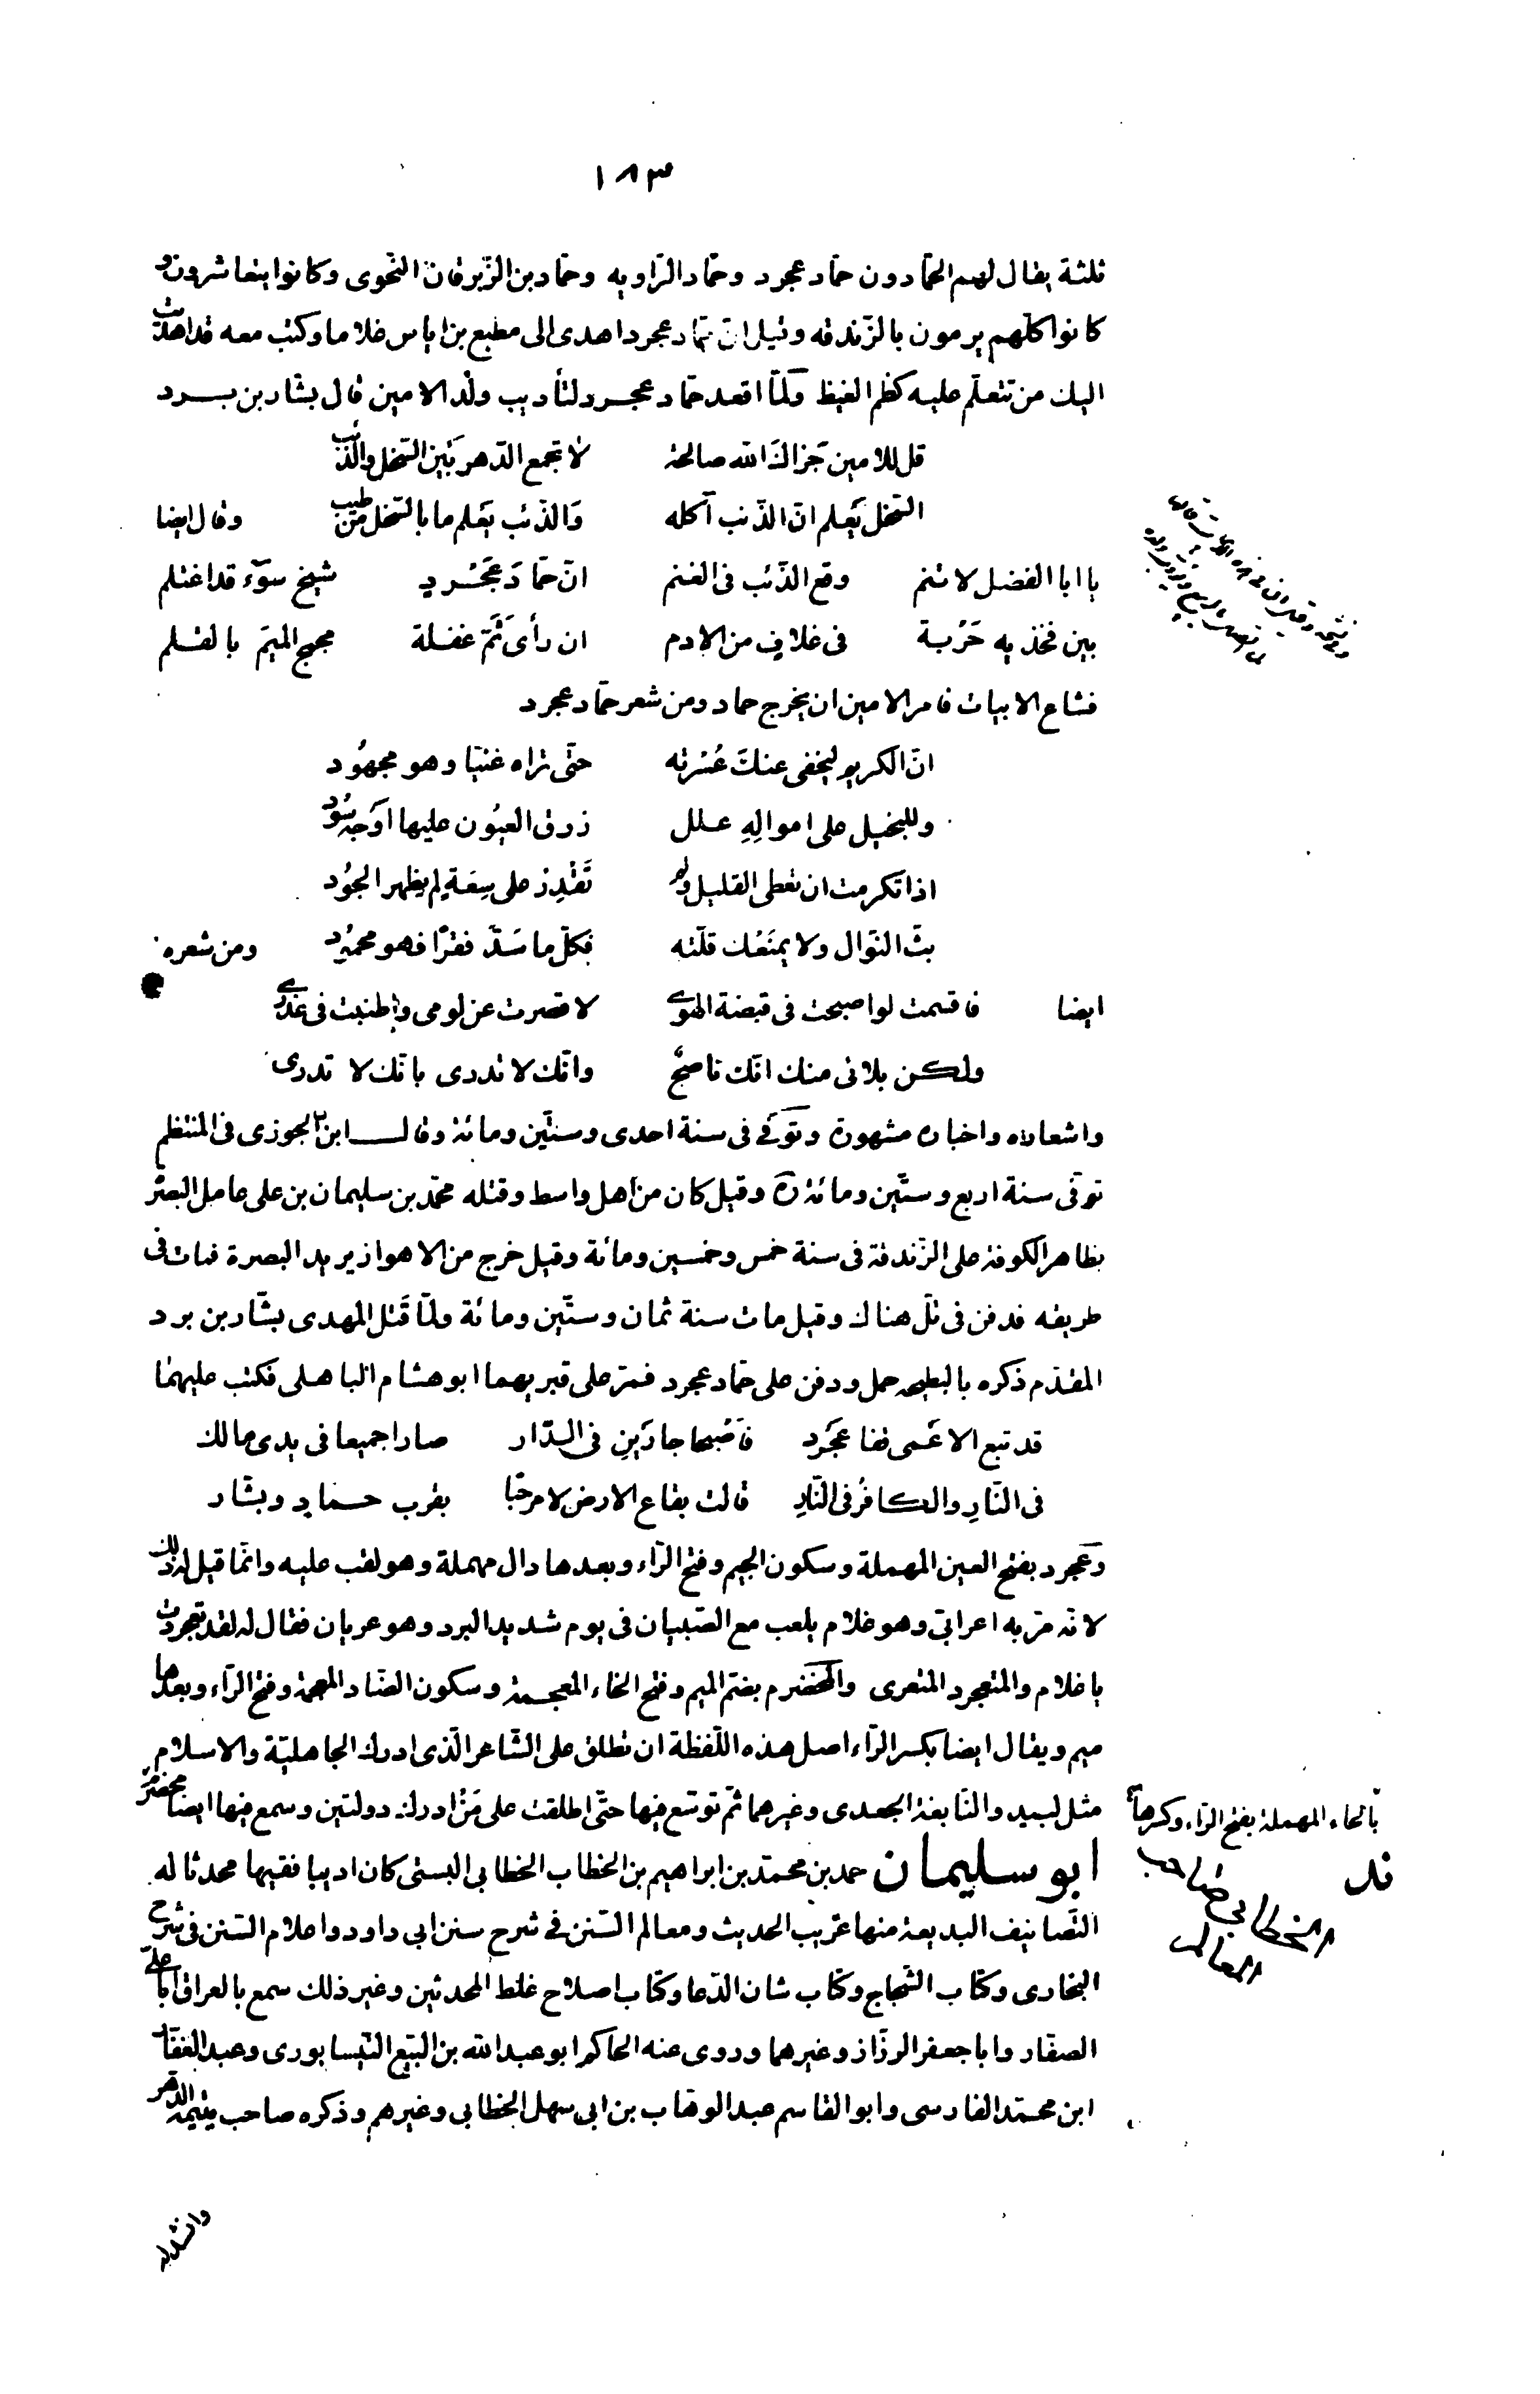 ١٨٣
ثلثة يقال لهم الحمّادون حمّاد عجرد وحمّاد الرّاويه وحمّاد بن الزّبرقان النّحوى وكانوا يتعاشرون و
كانوا كلّهم يرمون بالزّندقه وقيل انّ حمّاد عجرد اهدى الى مطيع بن اياس غلاما وكتب معه قد اهديت
اليك من تتعلّم عليه كظم الغيظ ولمّا اقعد حمّاد عجرد لتأديب ولد الامين قال بشّار بن برد
قل للامين جَزاكَ الله صالحة لا تجمع الدّهر بَين السّخل والذّئب
السّخل يَعلم انّ الذّئب آكله وَالذّئب يَعلم ما بالسّخل من طيب وقال ايضا
يا ابا الفضل لا تنم وقع الذّئب فى الغنم انّ حمّادَ عَجْرد شيخ سوَء قد اغتلم
بين فخذيه حَرْبة فى غلاف من الادم ان رأى ثَمّ غفلة مجمج الميَم بالقلم
فشاع الابيات فامر الامين ان يخرج حماد ومن شعر حمّاد عجرد
انّ الكريم ليخفى عنكَ عُسْرته حتّى تراه غنيّا وهو مجهُود
وللبخيل على اموالِهِ علل زرق العيُون عليها اوَجه سُود
اذا تكرمت ان تعطى القليل ولم تَقْدِر على سِعَة لم يظهر الجوُد
بثّ النّوال ولا يمنَعْك قلّته فكلّ ما سَدّ فقرًا فهو محمُود ومن شعره
ايضا فاقسمت لو اصبحت فى قبضة الهوى لاقصرت عن لومى واطنبت فى عذرى
ولكن بلائى منك انّك ناصحٌ وانّك لا تدرى بانّك لا تدرى
واشعاره واخباره مشهورة وتوَفّى فى سنة احدى وستّين ومائة وقال ابن الجوزى فى المنتظم
توفّى سنة اربع وستّين ومائة وقيل كان من اهل واسط وقتله محمّد بن سليمان بن على عامل البصرة
بظاهر الكوفة على الزّندقة فى سنة خمس وخمسين ومائة وقيل خرج من الاهواز يريد البصرة فمات فى
طريقه فدفن فى تلّ هناك وقيل مات سنة ثمان وستّين ومائة ولمّا قَتل المهدى بشّار بن برد
المقدّم ذكره بالبطيحه حمل ودفن على حمّاد عجرد فمرّ على قبريهما ابو هشام الباهلى فكتب عليهما
قد تبع الاعَمى قفا عَجْرَد فاَصْبحا جارَينِ فى الدّار صارا جميعا فى يدى مالك
فى النّارِ والكافرُ فى النّارِ قالت بقاع الارض لا مرحَبا بقرب حماد وبشّار
وَعجرد بفتح العين المهملة وسكون الجيم وفتح الرّاء وبعدها دال مهملة وهو لقب عليه وانّما قيل له ذلك
لانّه مرّ به اعرابّى وهو غلام يلعب مع الصّبيان فى يوم شديد البرد وهو عريان فقال له لقد تعجردت
يا غلام والمتعجرد المتعرى والمخضرم بضمّ الميم وفتح الخاء المعجمة وسكون الضّاد المعجمة وفتح الرّاء وبعدها
ميم ويقال ايضا بكسر الرّاء اصل هذه اللّفظة ان تطلق على الشّاعر الّذى ادرك الجاهليّة والاسلام
مثل لبيد والنّابغة الجعدى وغيرهما ثمّ توسّع فيها حتّى اطلقت على مَنْ ادرك دولتين وسمع فيها ايضا محضرم
بالحاء المهملة بفتح الرّاء وكسرها
ابو سليمان حمد بن محمّد بن ابراهيم بن الخطاب الخطابى البستى كان اديبا فقيها محدثا له
الخطابى صاحب
المعالم
التّصانيف البديعة منها غريب الحديث ومعالم السّنن فى شرح سنن ابى داود واعلام السّنن فى شرح
البخارى وكتاب الشّحاج وكتاب شان الدّعا وكتاب اصلاح غلط المحدثين وغير ذلك سمع بالعراق ابا على
الصفار وابا جعفر الرزّاز وغيرهما وروى عنه الحاكم ابو عبد الله بن البيّع النّيسابورى وعبد الغفّار
ابن محمّد الفارسى وابو القاسم عبد الوهّاب بن ابى سهل الخطابى وغيرهم وذكره صاحب يتيمة الدّهر
وانشد له